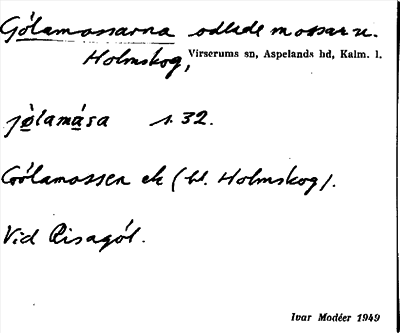 Gölamossarna odlade mossar u.
Holmskog, Virserums sn, Aspelands hd, Kalm. l.
jölamåsa s. 32.
Gölamossen ek (bl. Holmskog).
Vid Risagöl.
Ivar Modéer 1949